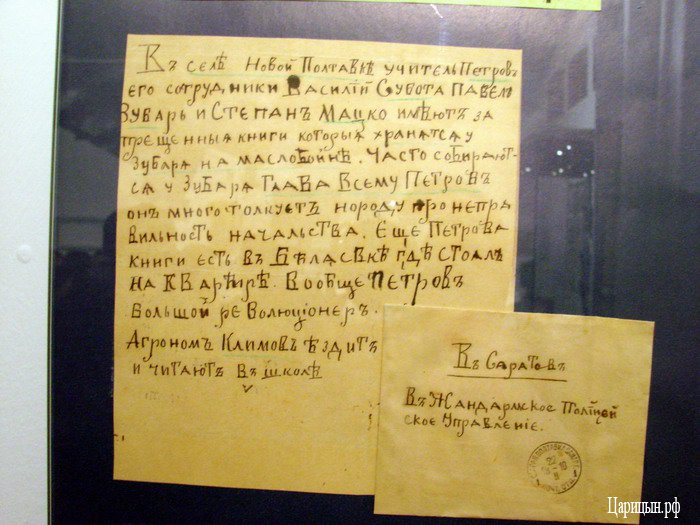 Въ селѣ Новой Полтавкѣ учитель Петровъ
его сотрудники Василій Субота Павелъ
Зубарь и Степанъ Мацко имѣютъ за
прещенныя книги которыя хранятся у
Зубаря на маслобойнѣ. Часто собирают-
ся у Зубаря Глава всему Петровъ
онъ много толкуетъ нороду про непра
вильность начальства. Еще Петрова
книги есть въ Бѣлаевкѣ гдѣ стоалъ
на кварѣирѣ. Вообще Петровъ
большой революціонеръ.
Агрономъ Климовъ ѣздитъ
и читаютъ въ школѣ
Въ Саратовъ
Въ Жандармское Полицей
ское Управленіе.
Царицын.рф